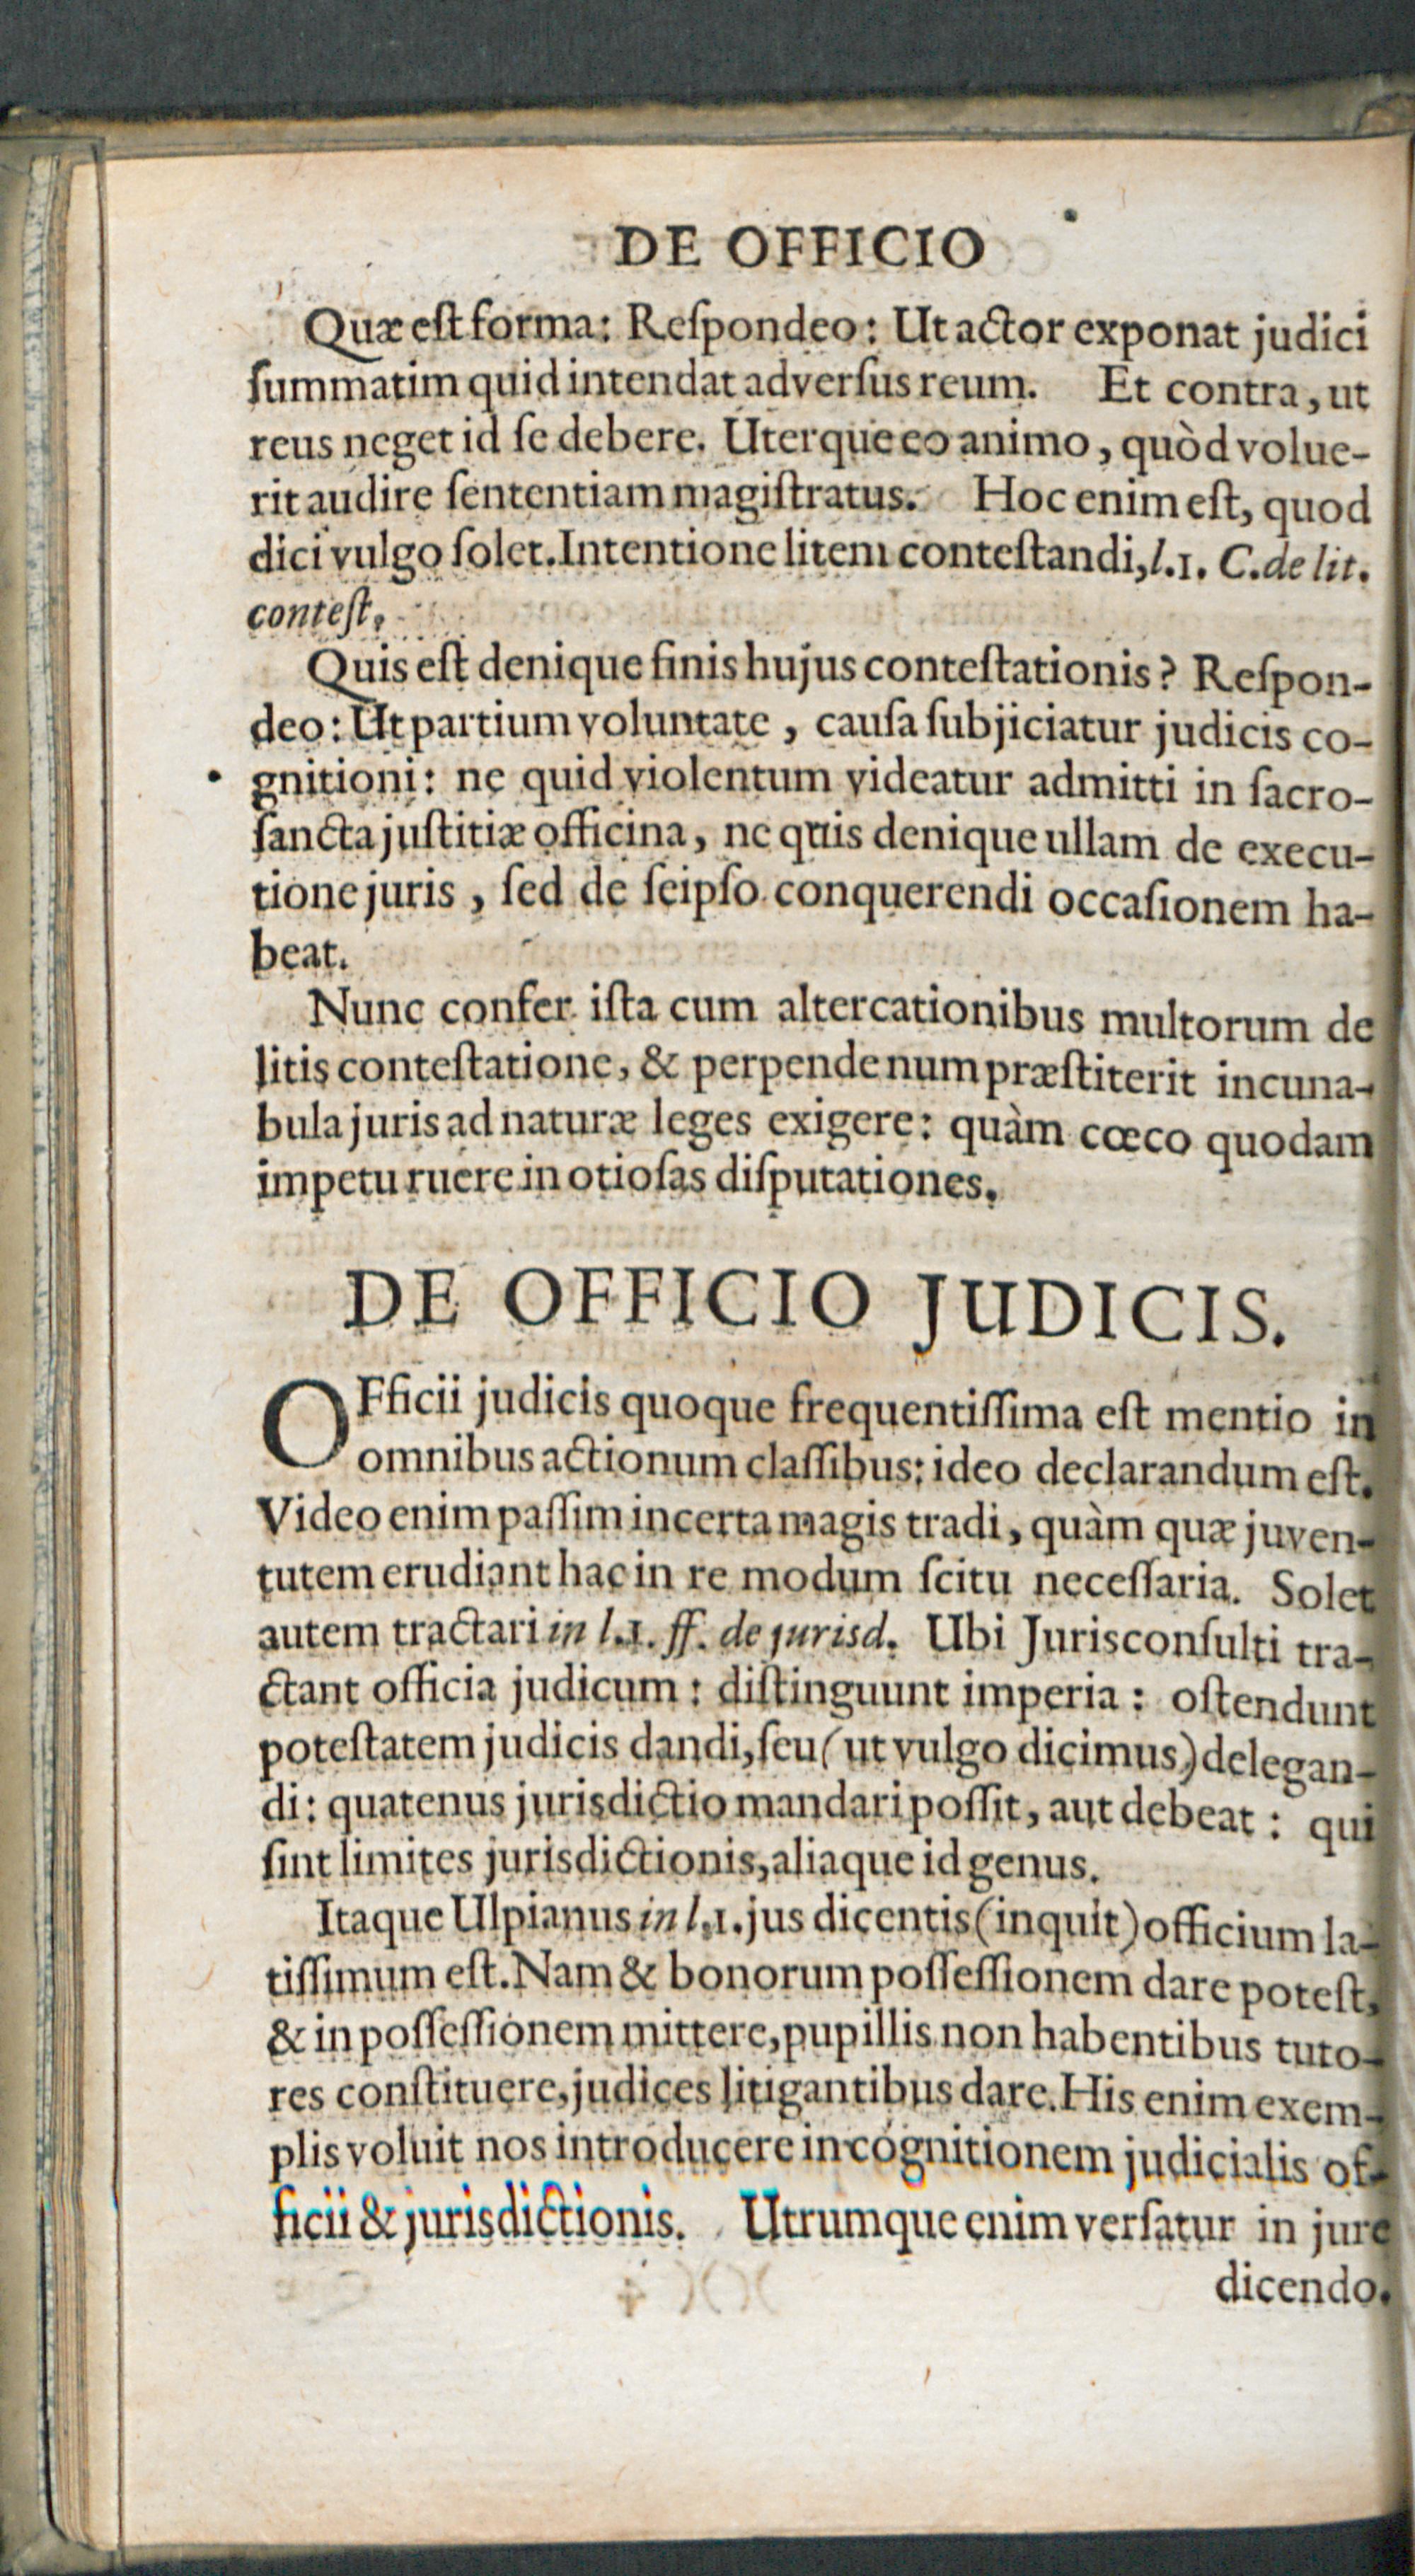 DE OFFICIO
Quæ eſt forma: Reſpondeo: Ut actor exponat judici
ſummatim quid intendat adverſus reum. Et contra, ut
reus neget id ſe debere. Uterque eo animo, quòd volue-
rit audire ſententiam magiſtratus. Hoc enim eſt, quod
dici vulgo ſolet. Intentione litem conteſtandi, l.1. C. de lit.
conteſt.
Quis eſt denique finis hujus conteſtationis? Reſpon-
deo: Ut partium voluntate, cauſa ſubjiciatur judicis co-
gnitioni: ne quid violentum videatur admitti in ſacro-
ſancta juſtitiæ officina, ne quis denique ullam de execu-
tione juris, ſed de ſeipſo conquerendi occaſionem ha-
beat.
Nunc confer iſta cum altercationibus multorum de
litis conteſtatione, & perpende num præſtiterit incuna-
bula juris ad naturæ leges exigere: quàm cœco quodam
impetu ruere in otioſas diſputationes.
DE OFFICIO JUDICIS.
OFficii judicis quoque frequentiſſima eſt mentio in
omnibus actionum claſſibus: ideo declarandum eſt.
Video enim paſſim incerta magis tradi, quàm quæ juven-
tutem erudiant hac in re modum ſcitu neceſſaria. Solet
autem tractari in l.1. ff. de jurisd. Ubi Jurisconſulti tra-
ctant officia judicum: diſtinguunt imperia: oſtendunt
poteſtatem judicis dandi, ſeu (ut vulgo dicimus) delegan-
di: quatenus jurisdictio mandari poſſit, aut debeat: qui
ſint limites jurisdictionis, aliaque id genus.
Itaque Ulpianus in l.1. jus dicentis (inquit) officium la-
tiſſimum eſt. Nam & bonorum poſſeſſionem dare poteſt,
& in poſſeſſionem mittere, pupillis non habentibus tuto-
res conſtituere, judices litigantibus dare. His enim exem-
plis voluit nos introducere in cognitionem judicialis of-
ficii & jurisdictionis. Utrumque enim verſatur in jure
dicendo.